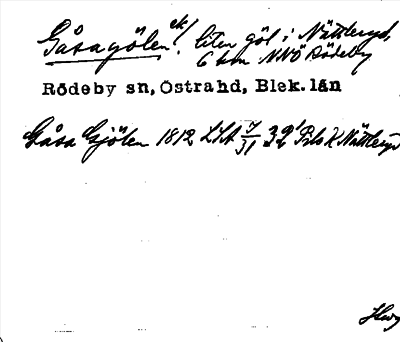 Gåsagölen ek.! liten göl i Nättleryd,
6 km NNÖ Rödeby
Rödeby sn, Östra hd, Blek. län
Gåsa Gjölen 1812 LSA 7/31 Nättleryd